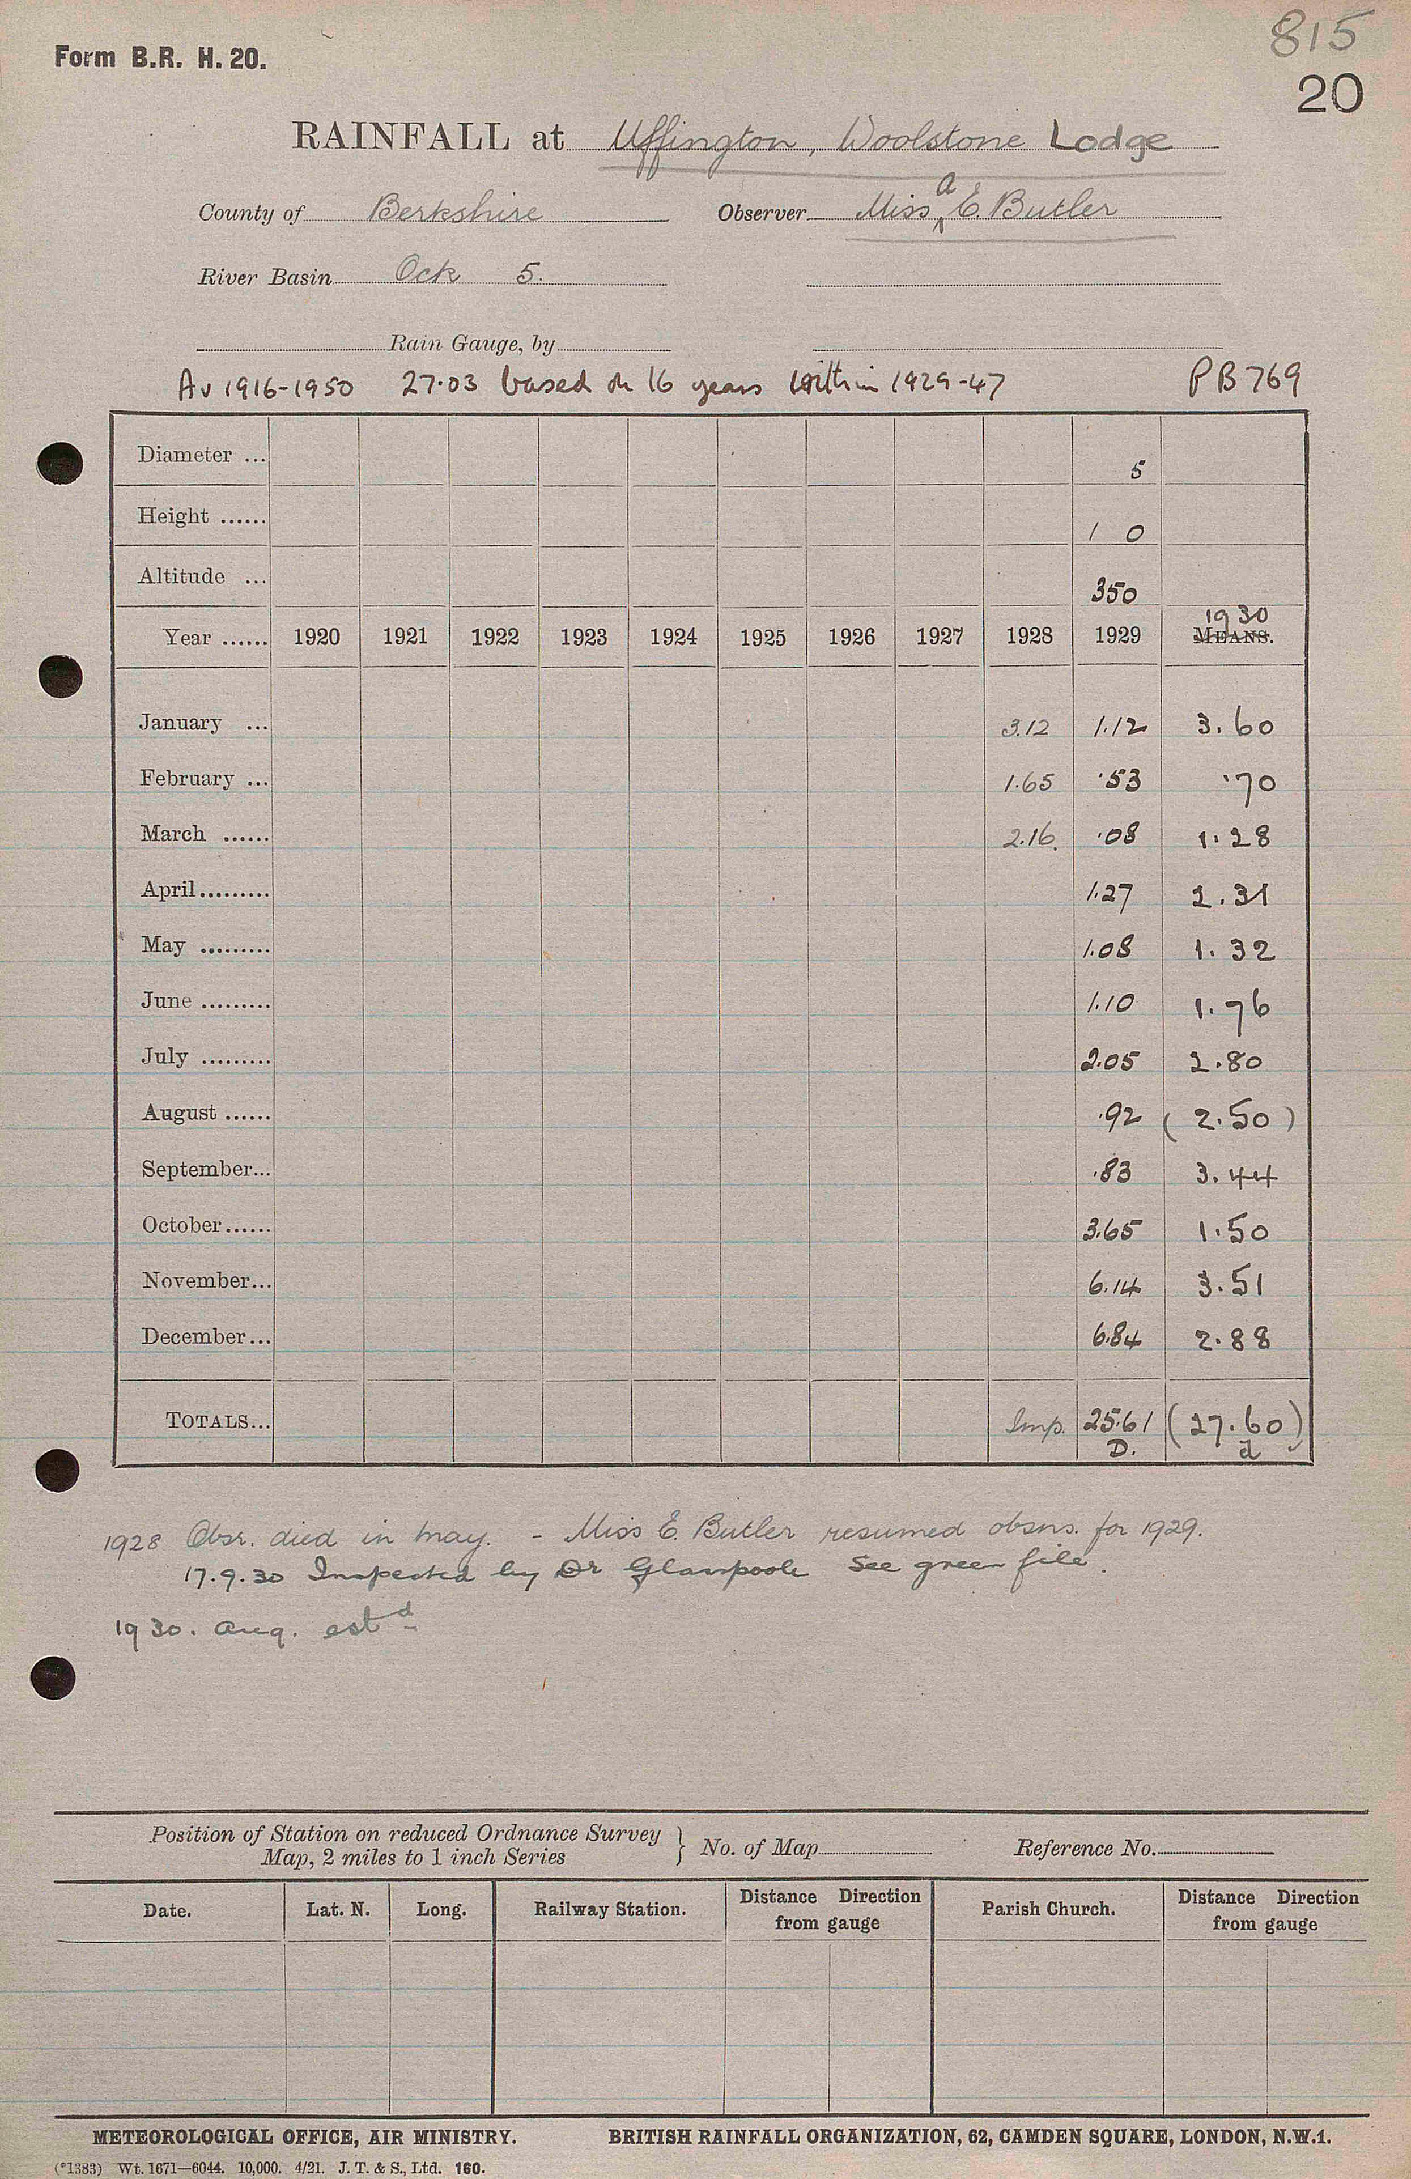 815
Form B.R. H. 20.
20
RAINFALL at Uffington, Woolstone Lodge
County of Berkshire Observer Miss a E. Butler
River Basin Ock 5.
Rain Gauge, by
Av 1916-1950 27.03 based on 16 years within 1929-47 PB 769
Diameter ... 5
Height ...... 1 0
Altitude ... 350
1930
Year ...... 1920 1921 1922 1923 1924 1925 1926 1927 1928 1929 MEANS.
January ... 3.12 1.12 3.60
February ... 1.65 .53 .70
March ...... 2.16. .08 1.28
April......... 1.27 2.31
May ......... 1.08 1.32
June ......... 1.10 1.76
July ......... 2.05 2.80
August ...... .92 (2.50)
September... .83 3.44
October...... 3.65 1.50
November... 6.14 3.51
December... 6.84 2.88
TOTALS... Imp. 25.61 (27.60)
D. d
1928 Obsr. died in May. - Miss E. Butler resumed obsns. for 1929.
17.9.30 Inspected by Dr Glasspoole See green file.
1930. Aug. est d
Position of Station on reduced Ordnance Survey
Map, 2 miles to 1 inch Series } No. of Map Reference No.
Date. Lat. N. Long. Railway Station. Distance Direction from gauge Parish Church. Distance Direction from gauge
METEOROLOGICAL OFFICE, AIR MINISTRY. BRITISH RAINFALL ORGANIZATION, 62, CAMDEN SQUARE, LONDON, N.W.1.
(*1383) Wt. 1671—6044. 10,000. 4/21. J. T. & S., Ltd. 160.